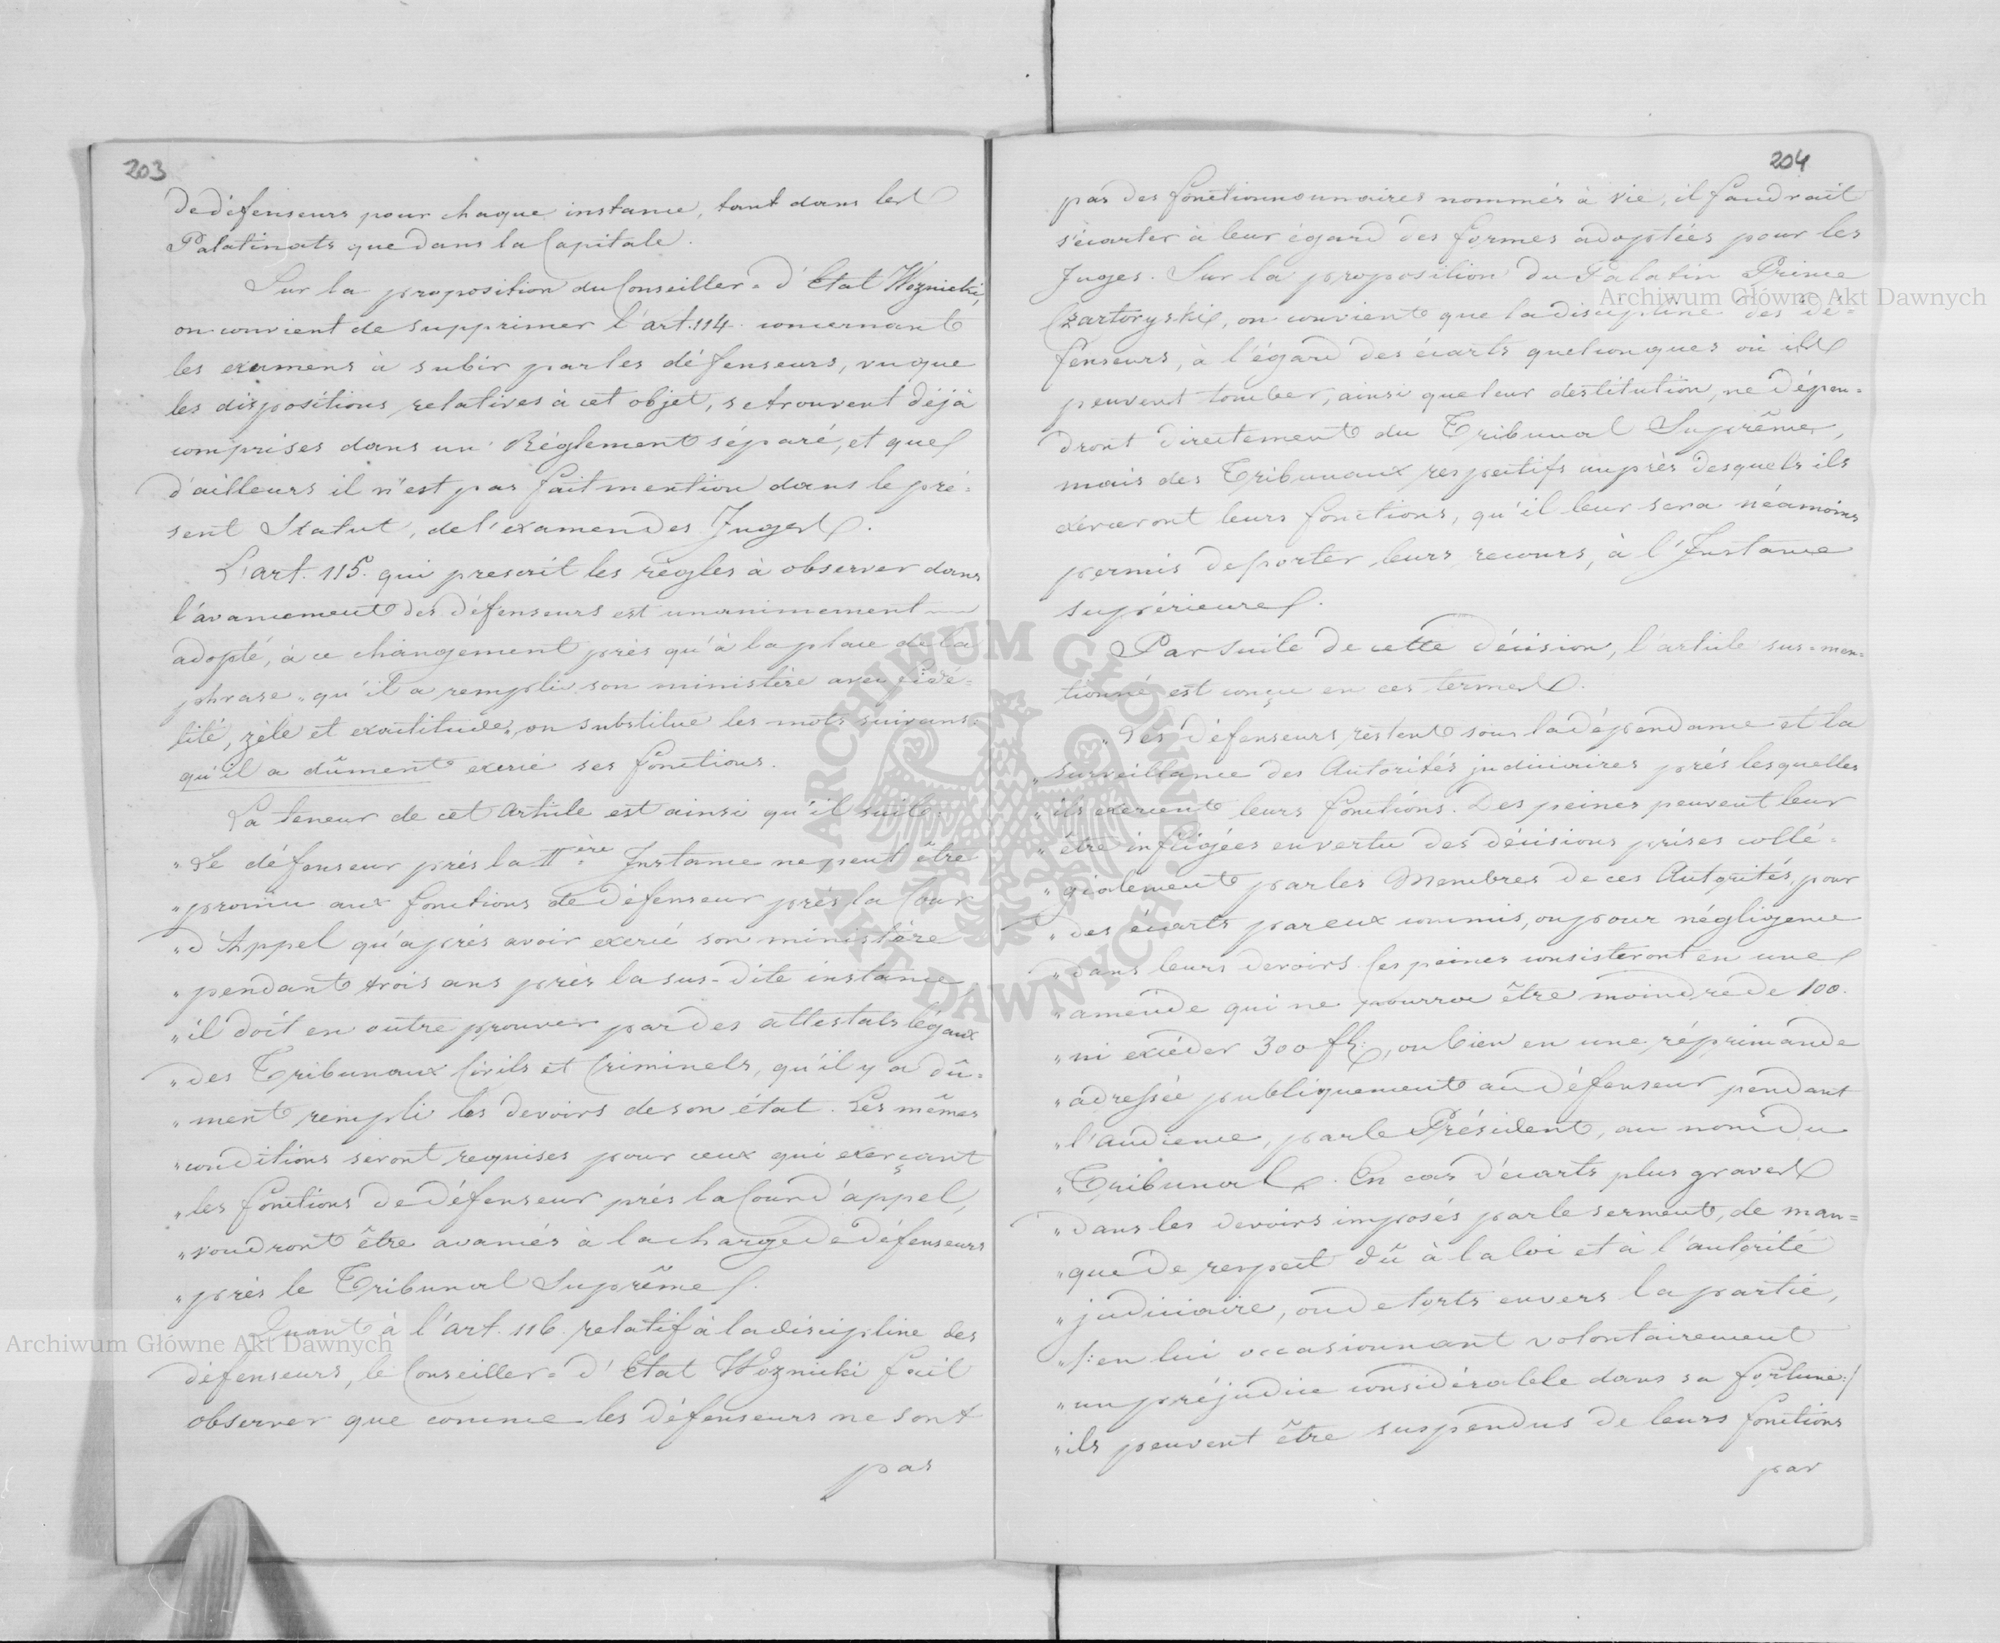 203
de défenseurs pour chaque instance, tant dans les
Palatinats que dans la Capitale.
Sur la proposition du Conseiller = d'Etat Woznicki,
on convient de supprimer l'art. 114. concernant
les examens à subir par les défenseurs, vu que
les dispositions relatives à cet objet, se trouvent déjà
comprises dans un Réglement séparé, et que
d'ailleurs il n'est pas fait mention dans le pré=
sent Statut, de l'examen des Juges.
L'art. 115. qui prescrit les règles à observer dans
l'avancement des défenseurs est unanimement
adopté, à ce changement près qu'à la place de la
phrase „qu'il a rempli son ministère avec fidé=
lité, zèle et exactitude„ on substitue les mots suivans:
qu'il a dûment exercé ses fonctions.
La teneur de cet article est ainsi qu'il suit:
„Le défenseur près la IIère Instance ne peut être
„promu aux fonctions de défenseur près la Cour
„d'Appel qu'après avoir exercé son ministère
„pendant trois ans près la sus-dite instance
„il doit en outre prouver par des attestats légaux
„des Tribunaux Civils et Criminels, qu'il y a dû=
„ment rempli les devoirs de son état. Les mêmes
„conditions seront requises pour ceux qui exerçant
„les fonctions de défenseur près la Cour d'appel,
„voudront être avancés à la charge de défenseurs
„près le Tribunal Suprême.
Quant à l'art. 116. relatif à la discipline des
défenseurs, le Conseiller = d'Etat Woznicki fait
observer que comme les défenseurs ne sont
pas
204
pas des fonctionnounaires nommés à vie, il faudrait
s'écarter à leur égard des formes adoptées pour les
Juges. Sur la proposition du Palatin Prince
Czartoryski, on convient que la discipline des dé=
fenseurs, à l'égard des écarts quelconques où ils
peuvent tomber, ainsi que leur destitution, ne dépen=
dront directement du Tribunal Suprême,
mais des Tribunaux respectifs auprès desquels ils
exerceront leurs fonctions, qu'il leur sera néamoins
permis de porter leurs recours, à l'Instance
supérieure.
Par suite de cette décision, l'article sus=men=
tionné est conçu en ces termes.
„Les défenseurs restent sous la dépendance et la
„surveillance des Autorités judiciaires près lesquelles
„ils exercent leurs fonctions. Des peines peuvent leur
„être infligées en vertu des décisions prises collé=
„gialement par les Membres de ces Autorités, pour
„des écarts par eux commis, ou pour négligence
„dans leurs devoirs. Ces peines consisteront en une
„amende qui ne pourra être moindre de 100.
„ni excéder 300 fl:, ou bien en une réprimande
„adressée publiquement au défenseur pendant
„l'audience, par le Président, au nom du
„Tribunal. En cas d'écarts plus graves
„dans les devoirs imposés par le serment, de man=
„que de respect dû à la loi et à l'autorité
„judiciaire, ou de torts envers la partie,
„/: en lui occasionnant volontairement
„un préjudice considérable dans sa fortune :/
„ils peuvent être suspendus de leurs fonctions
par
Archiwum Główne Akt Dawnych
Archiwum Główne Akt Dawnych
ARCHIWUM GŁÓWNE AKT DAWNYCH